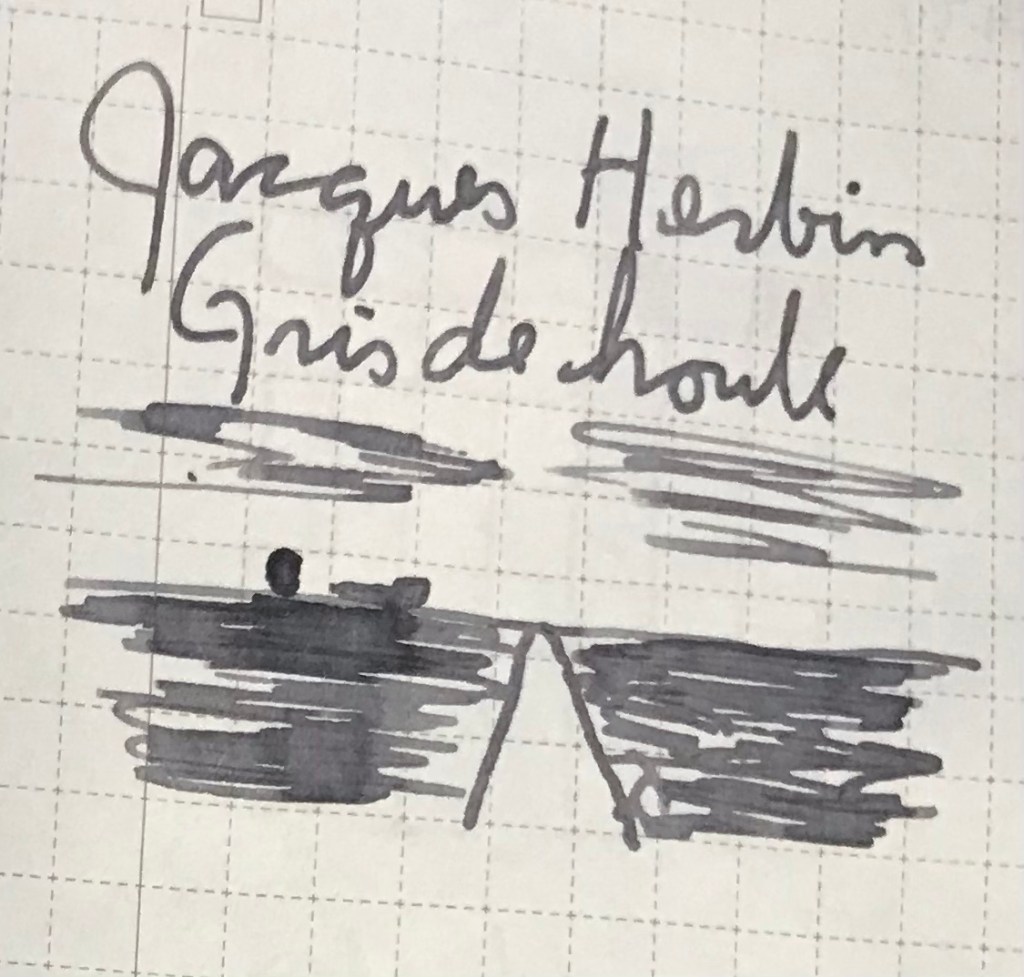 Jacques Herbin
Gris de houle